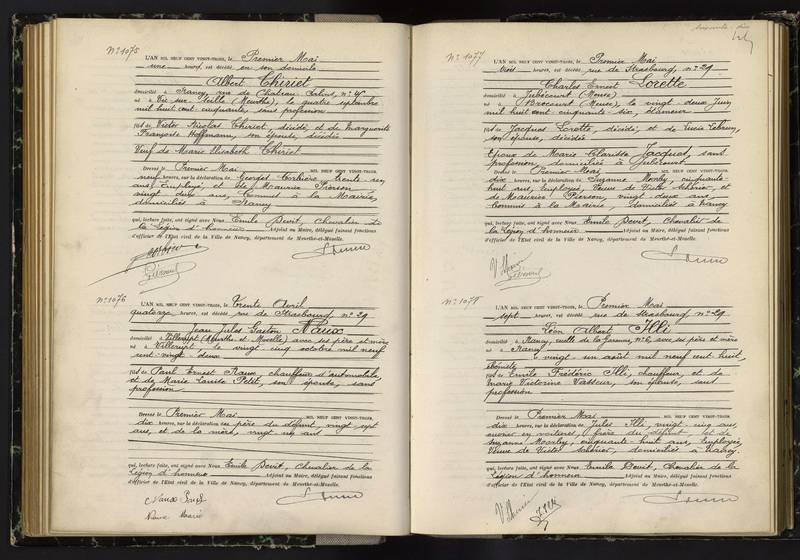 N° 1075
L'AN MIL NEUF CENT VINGT-TROIS, le Premier Mai
une heures, est décédé en son domicile
Albert Thiriet
domicilié à Nancy, rue de Château-Salins, n° 4
né à Vic sur Seille (Meurthe), le quatre septembre
mil huit cent cinquante, sans profession
fils de Victor Nicolas Thiriet, décédé, et de Marguerite
Françoise Hoffmann, son épouse, décédée
Veuf de Marie Elisabeth Thiriet
Dressé le Premier Mai MIL NEUF CENT VINGT-TROIS,
neuf heures, sur la déclaration de Georges trente
ans, Employé, et de Maurice Pierson
vingt deux ans, Commis à la Mairie,
domiciliés à Nancy
qui, lecture faite, ont signé avec Nous Emile Devit, Chevalier de
la Légion d'honneur Adjoint au Maire, délégué faisant fonctions
d'officier de l'Etat civil de la Ville de Nancy, département de Meurthe-et-Moselle.
N° 1076
L'AN MIL NEUF CENT VINGT-TROIS, le Trente Avril
quatorze heures, est décédé rue de Strasbourg n° 29
Jean Jules Gaston Naux
domicilié à Villerupt (Meurthe et Moselle) avec ses père et mère
né à Villerupt le vingt cinq octobre mil neuf
cent vingt deux
fils de Paul Ernest Naux chauffeur d'automobile,
et de Marie Louise Petit, son épouse, sans
profession
Dressé le Premier Mai MIL NEUF CENT VINGT-TROIS,
dix heures, sur la déclaration du père du défunt, vingt sept
ans, et de la mère, vingt un ans
qui, lecture faite, ont signé avec Nous Emile Devit, Chevalier de la
Légion d'honneur Adjoint au Maire, délégué faisant fonctions
d'officier de l'Etat civil de la Ville de Nancy, département de Meurthe-et-Moselle.
Naux Paul
Naux Marie
N° 1077
L'AN MIL NEUF CENT VINGT-TROIS, le Premier Mai
trois heures, est décédé rue de Strasbourg, n° 29
Charles Ernest Lorette
domicilié à Jubécourt (Meuse)
né à Brocourt (Meuse), le vingt-deux Juin
mil huit cent cinquante-six,
fils de Jacques Lorette, décédé, et de Lucie Lebrun,
son épouse, décédée
Epoux de Marie Clarisse Jacquot, sans
profession, domiciliée à Jubécourt
Dressé le Premier Mai MIL NEUF CENT VINGT-TROIS,
dix heures, sur la déclaration de Suzanne cinquante
huit ans, Employée, Veuve de Victor Thérier, et
de Maurice Pierson, vingt deux ans,
Commis à la Mairie domiciliés à Nancy
qui, lecture faite, ont signé avec Nous Emile Devit, Chevalier de
la Légion d'honneur Adjoint au Maire, délégué faisant fonctions
d'officier de l'Etat civil de la Ville de Nancy, département de Meurthe-et-Moselle.
N° 1078
L'AN MIL NEUF CENT VINGT-TROIS, le Premier Mai
sept heures, est décédé rue de Strasbourg n° 29
Léon Albert Illi
domicilié à Nancy, ruelle de la Garenne, n° 6, avec ses père et mère
né à Nancy
le vingt un août mil neuf cent huit,
fils de Emile Frédéric Illi, chauffeur, et de
Marie Victorine Vasseur, son épouse, sans
profession
Dressé le Premier Mai MIL NEUF CENT VINGT-TROIS,
dix heures, sur la déclaration de Jules Illi, vingt cinq ans,
ouvrier en voitures, frère du défunt, et de
Suzanne cinquante huit ans, Employée,
Veuve de Victor Thérier, domiciliés à Nancy
qui, lecture faite, ont signé avec Nous Emile Devit, Chevalier de la
Légion d'honneur Adjoint au Maire, délégué faisant fonctions
d'officier de l'Etat civil de la Ville de Nancy, département de Meurthe-et-Moselle.
J. Illi